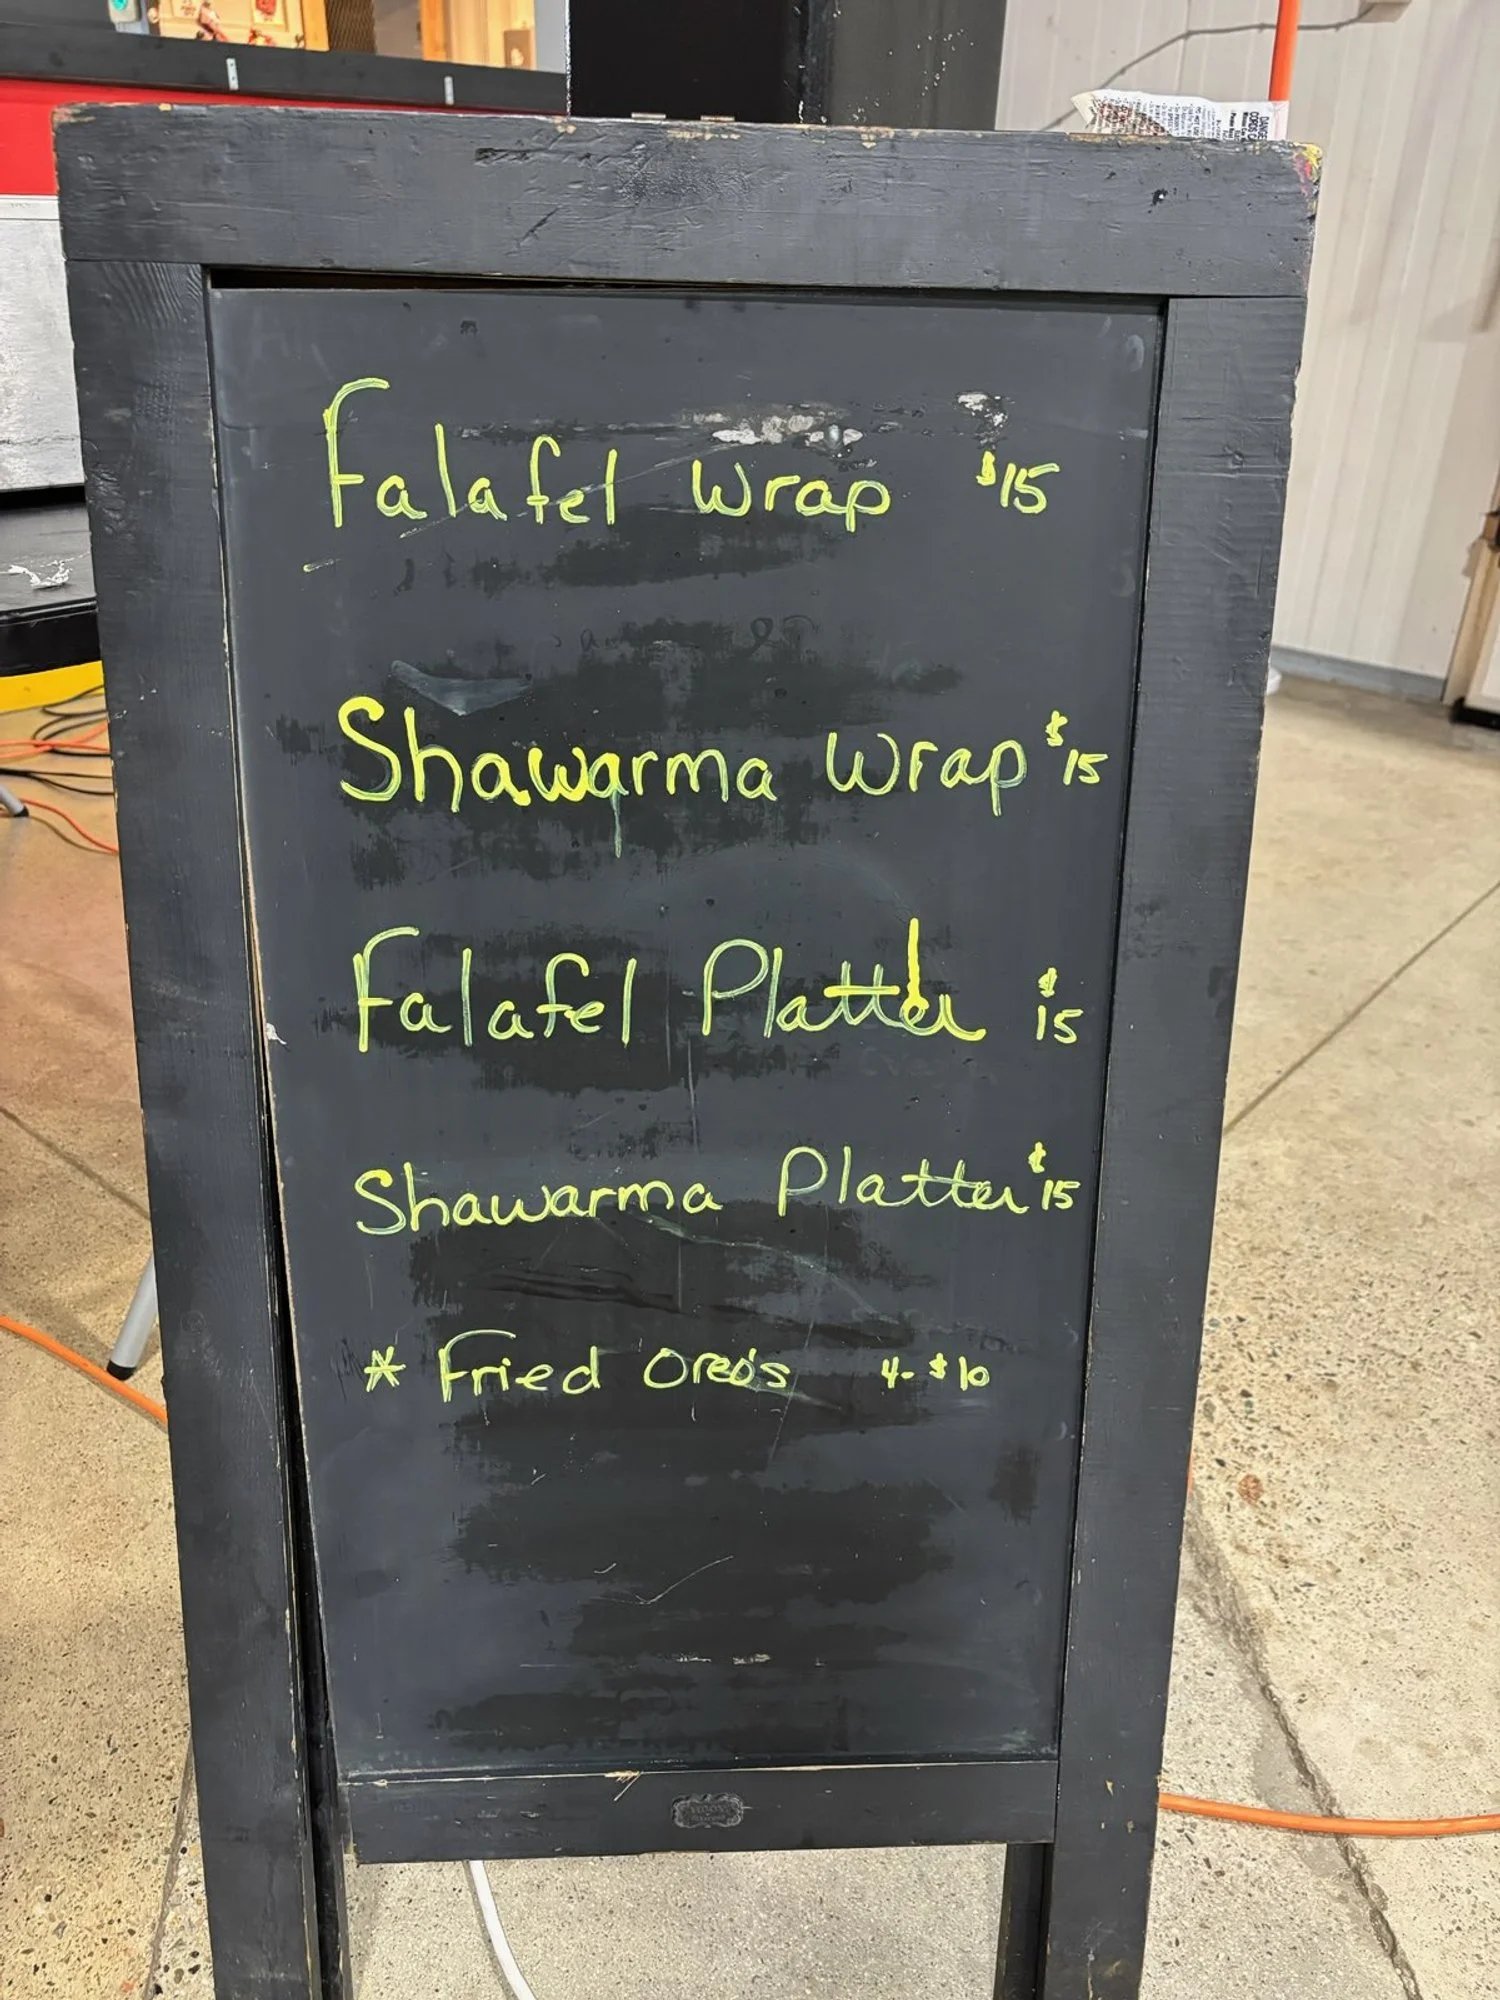 Falafel Wrap $15
Shawarma Wrap $15
Falafel Platter $15
Shawarma Platter $15
* Fried Oreo's 4- $10